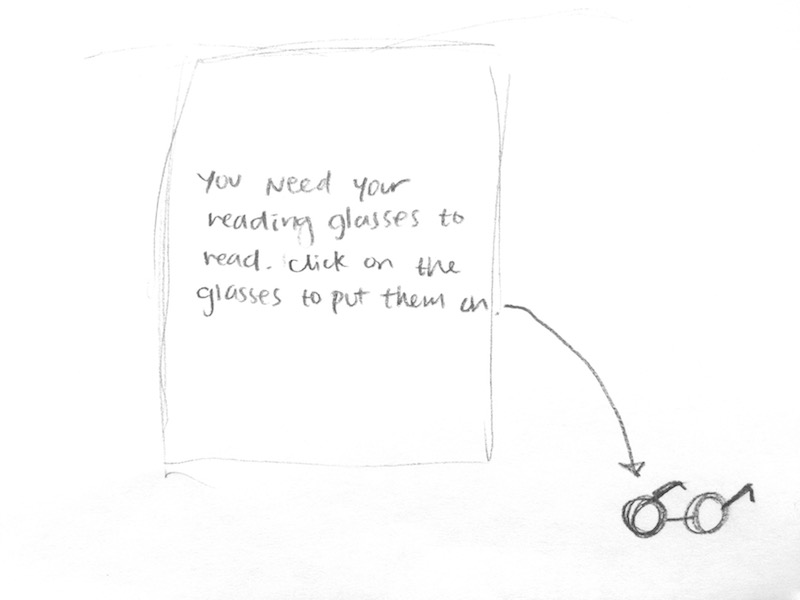 You need your
reading glasses to
read. click on the
glasses to put them on.